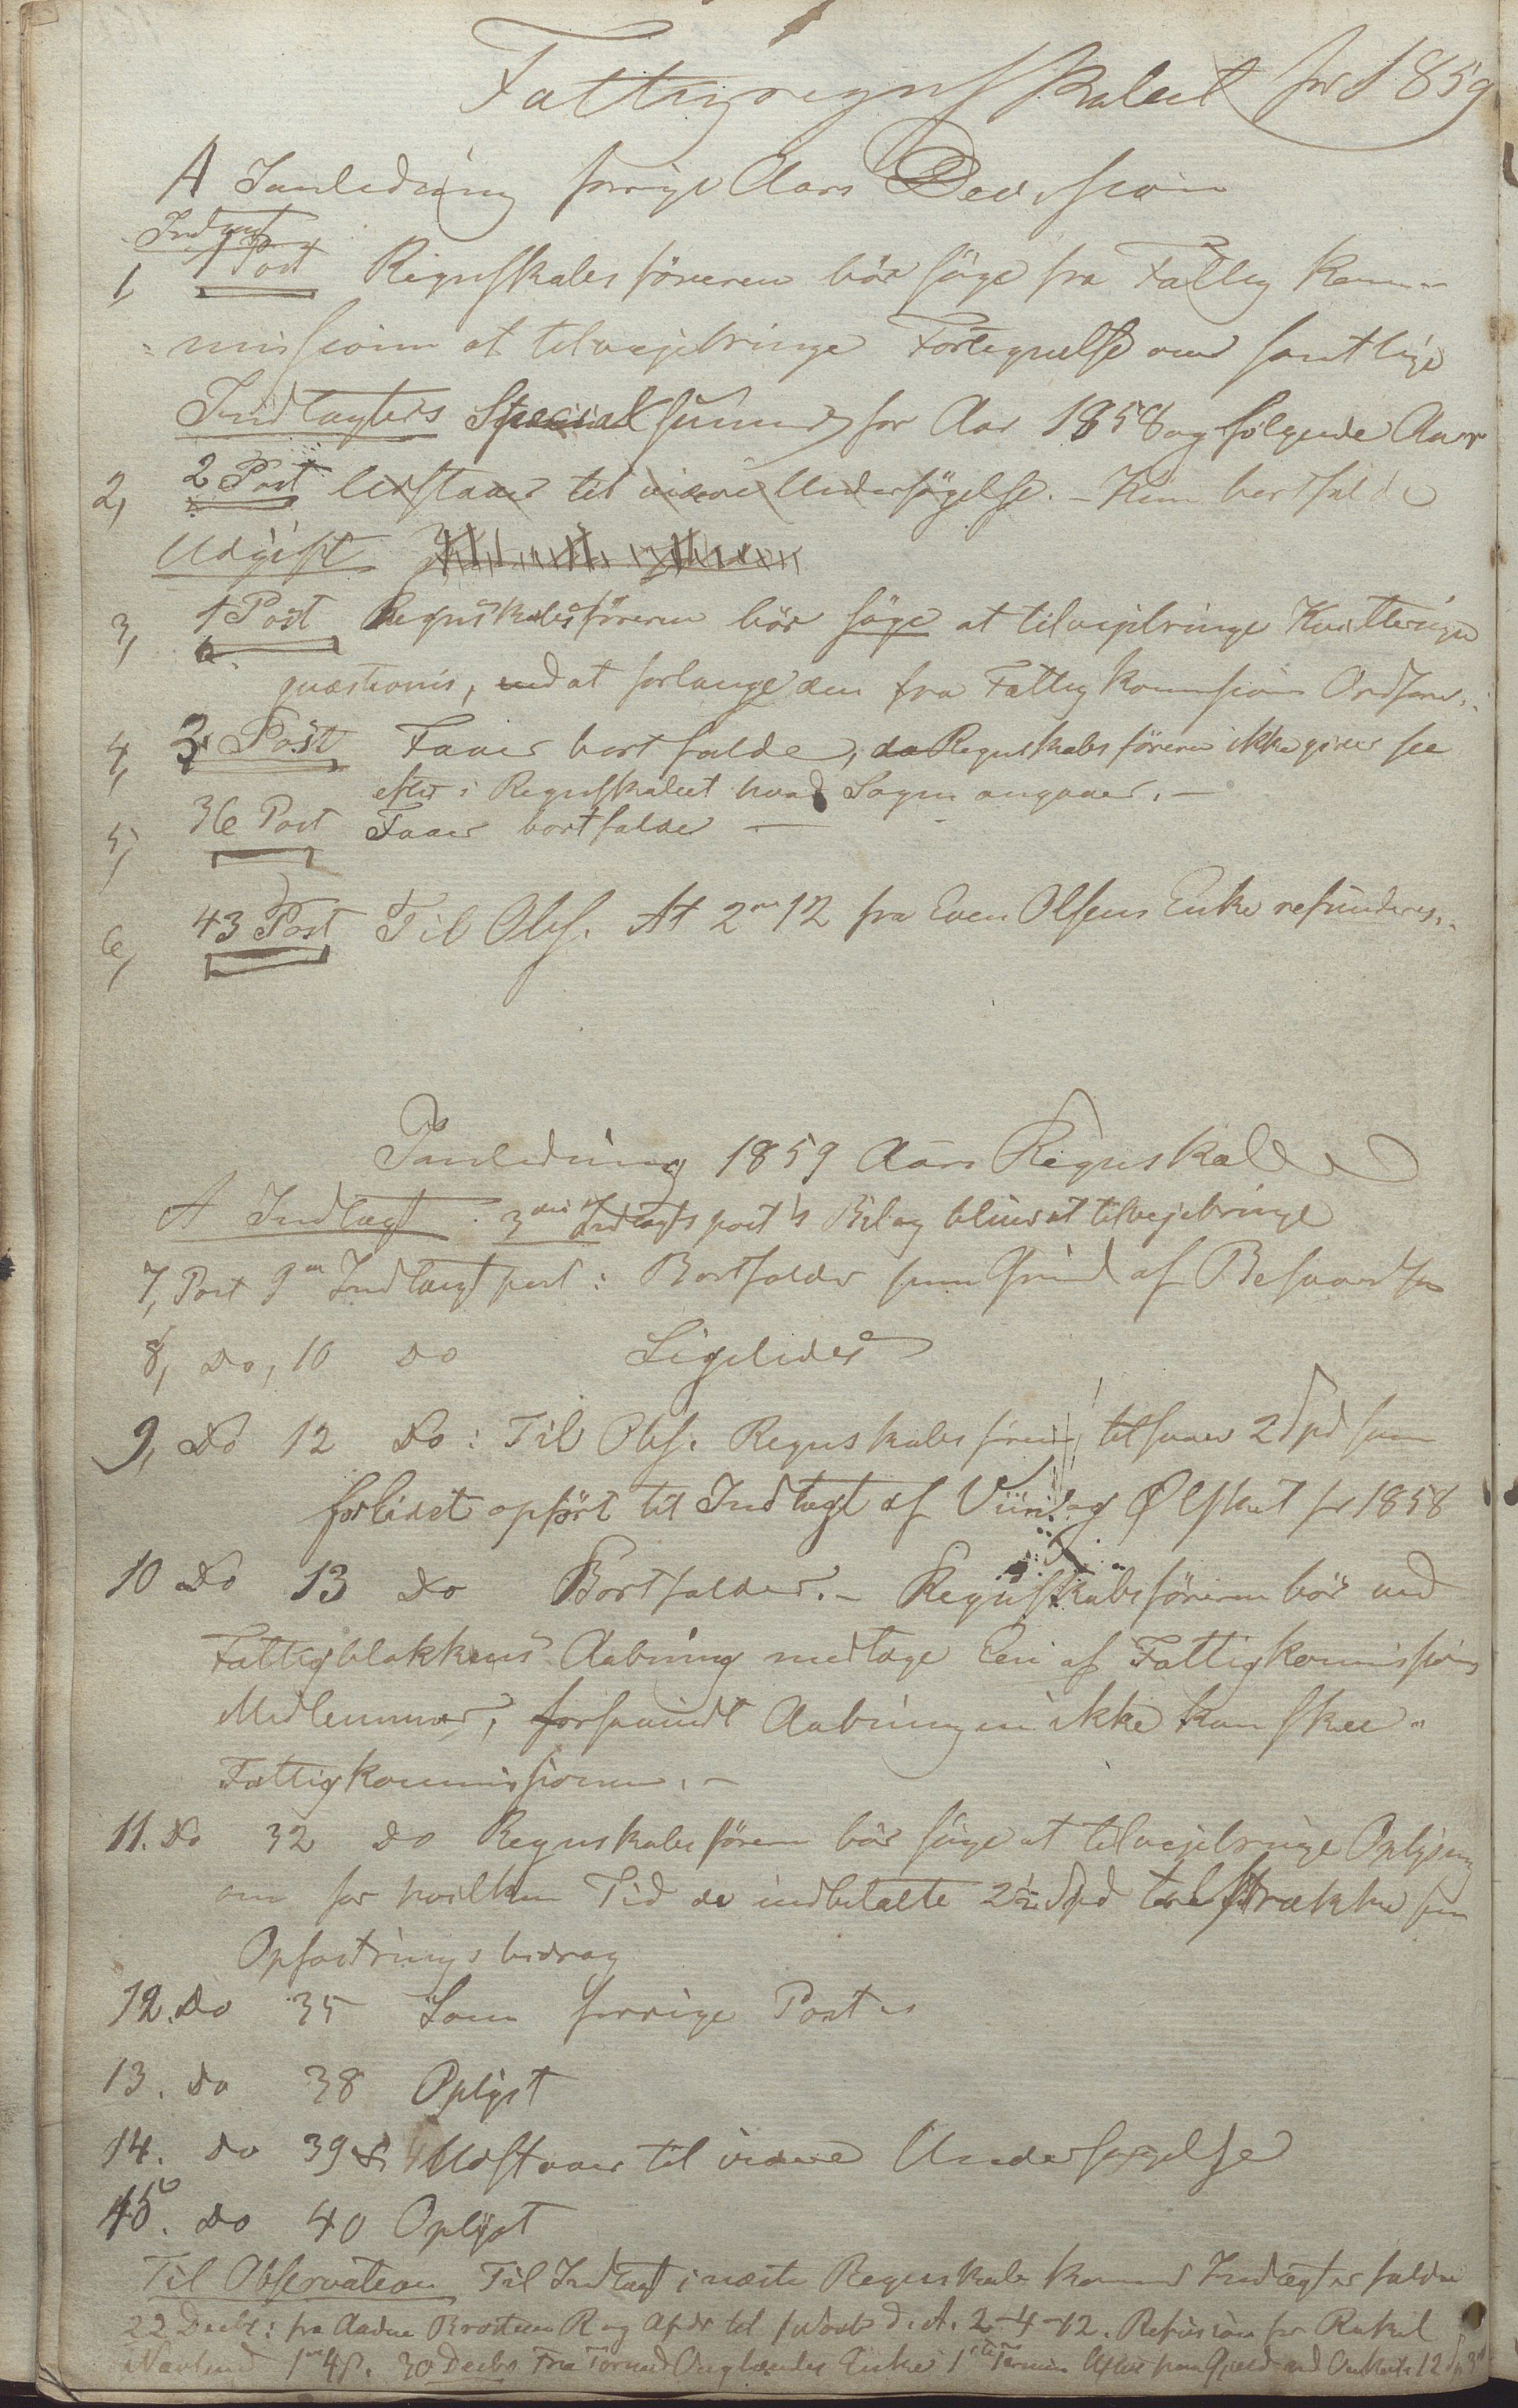 Fattigregnskabet for 1859
A I anledning forrige Aars Decision
Indtægt
1, 1 Post Regnskabsföreren bör söge fra Fattig Kom-
missionen at tilvejebringe Fortegnelse over samtlige
Indtægters Special summer for Aar 1858 og fölgende Aar
2, 2 Post Udstaaer til videre Undersögelse. - Kan bortfalde
Udgift
3, 1 Post Regnskabsföreren bör söge at tilvejebringe Kvitteringen
quæstionis, ved at forlange den fra Fattigkommissions Ordförer
4, 3 Post Faaer bortfalde, da Regnskabsföreren ikke giver see
efter i Regnskabet hvad Sagen angaaer. -
5, 36 Post Faaer bortfalde -
6, 43 Post Til Obs. At 2 12 fra Even Olsens Enke refunderes.
I anledning 1859 Aars Regnskab
A Indtægt 3die Indtægtspost's Bilag bliver at tilvejebringe
7, Post 9 Indtægtspost: Bortfalder paa Grund af Besvarelsen
8, Do, 10 Do Ligeledes
9, Do 12 Do: Til Obs. Regnskabsföreren tilsvarer 2 Spd som
forlidet opfört til Indtægt af Viin og Ølskat for 1858
10 Do 13 Do Bortfalder. - Regnskabsföreren bör ved
Fattigblokkens Aabning medtage Een af Fattigkommissions
Medlemmer, forsaavidt Aabningen ikke kan skee i
Fattigkommissionen. -
11. Do 32 Do Regnskabsföreren bör söge at tilvejebringe Oplysning
om for hvilken Tid de indbetalte 2½ Spd strække sin
Opfostringsbidrag
12. Do 35 Som forrige Post
13. Do 38 Oplyst
14. Do 39 Udstaaer til videre Undersøgelse
15. Do 40 Oplyst
Til Observation Til Indtægt i næste Regnskab kommer Indtægter
22 Decbr: fra Aadne d. A. 2-4-12. Refusion for Rakel
30 Decbr Fra Enke 1ste Termin